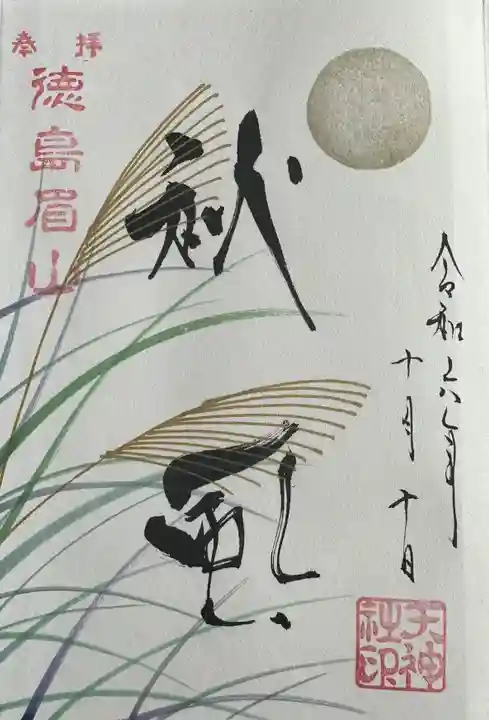 奉拝
徳島眉山
秋風
令和六年
十月十日
天神
社印